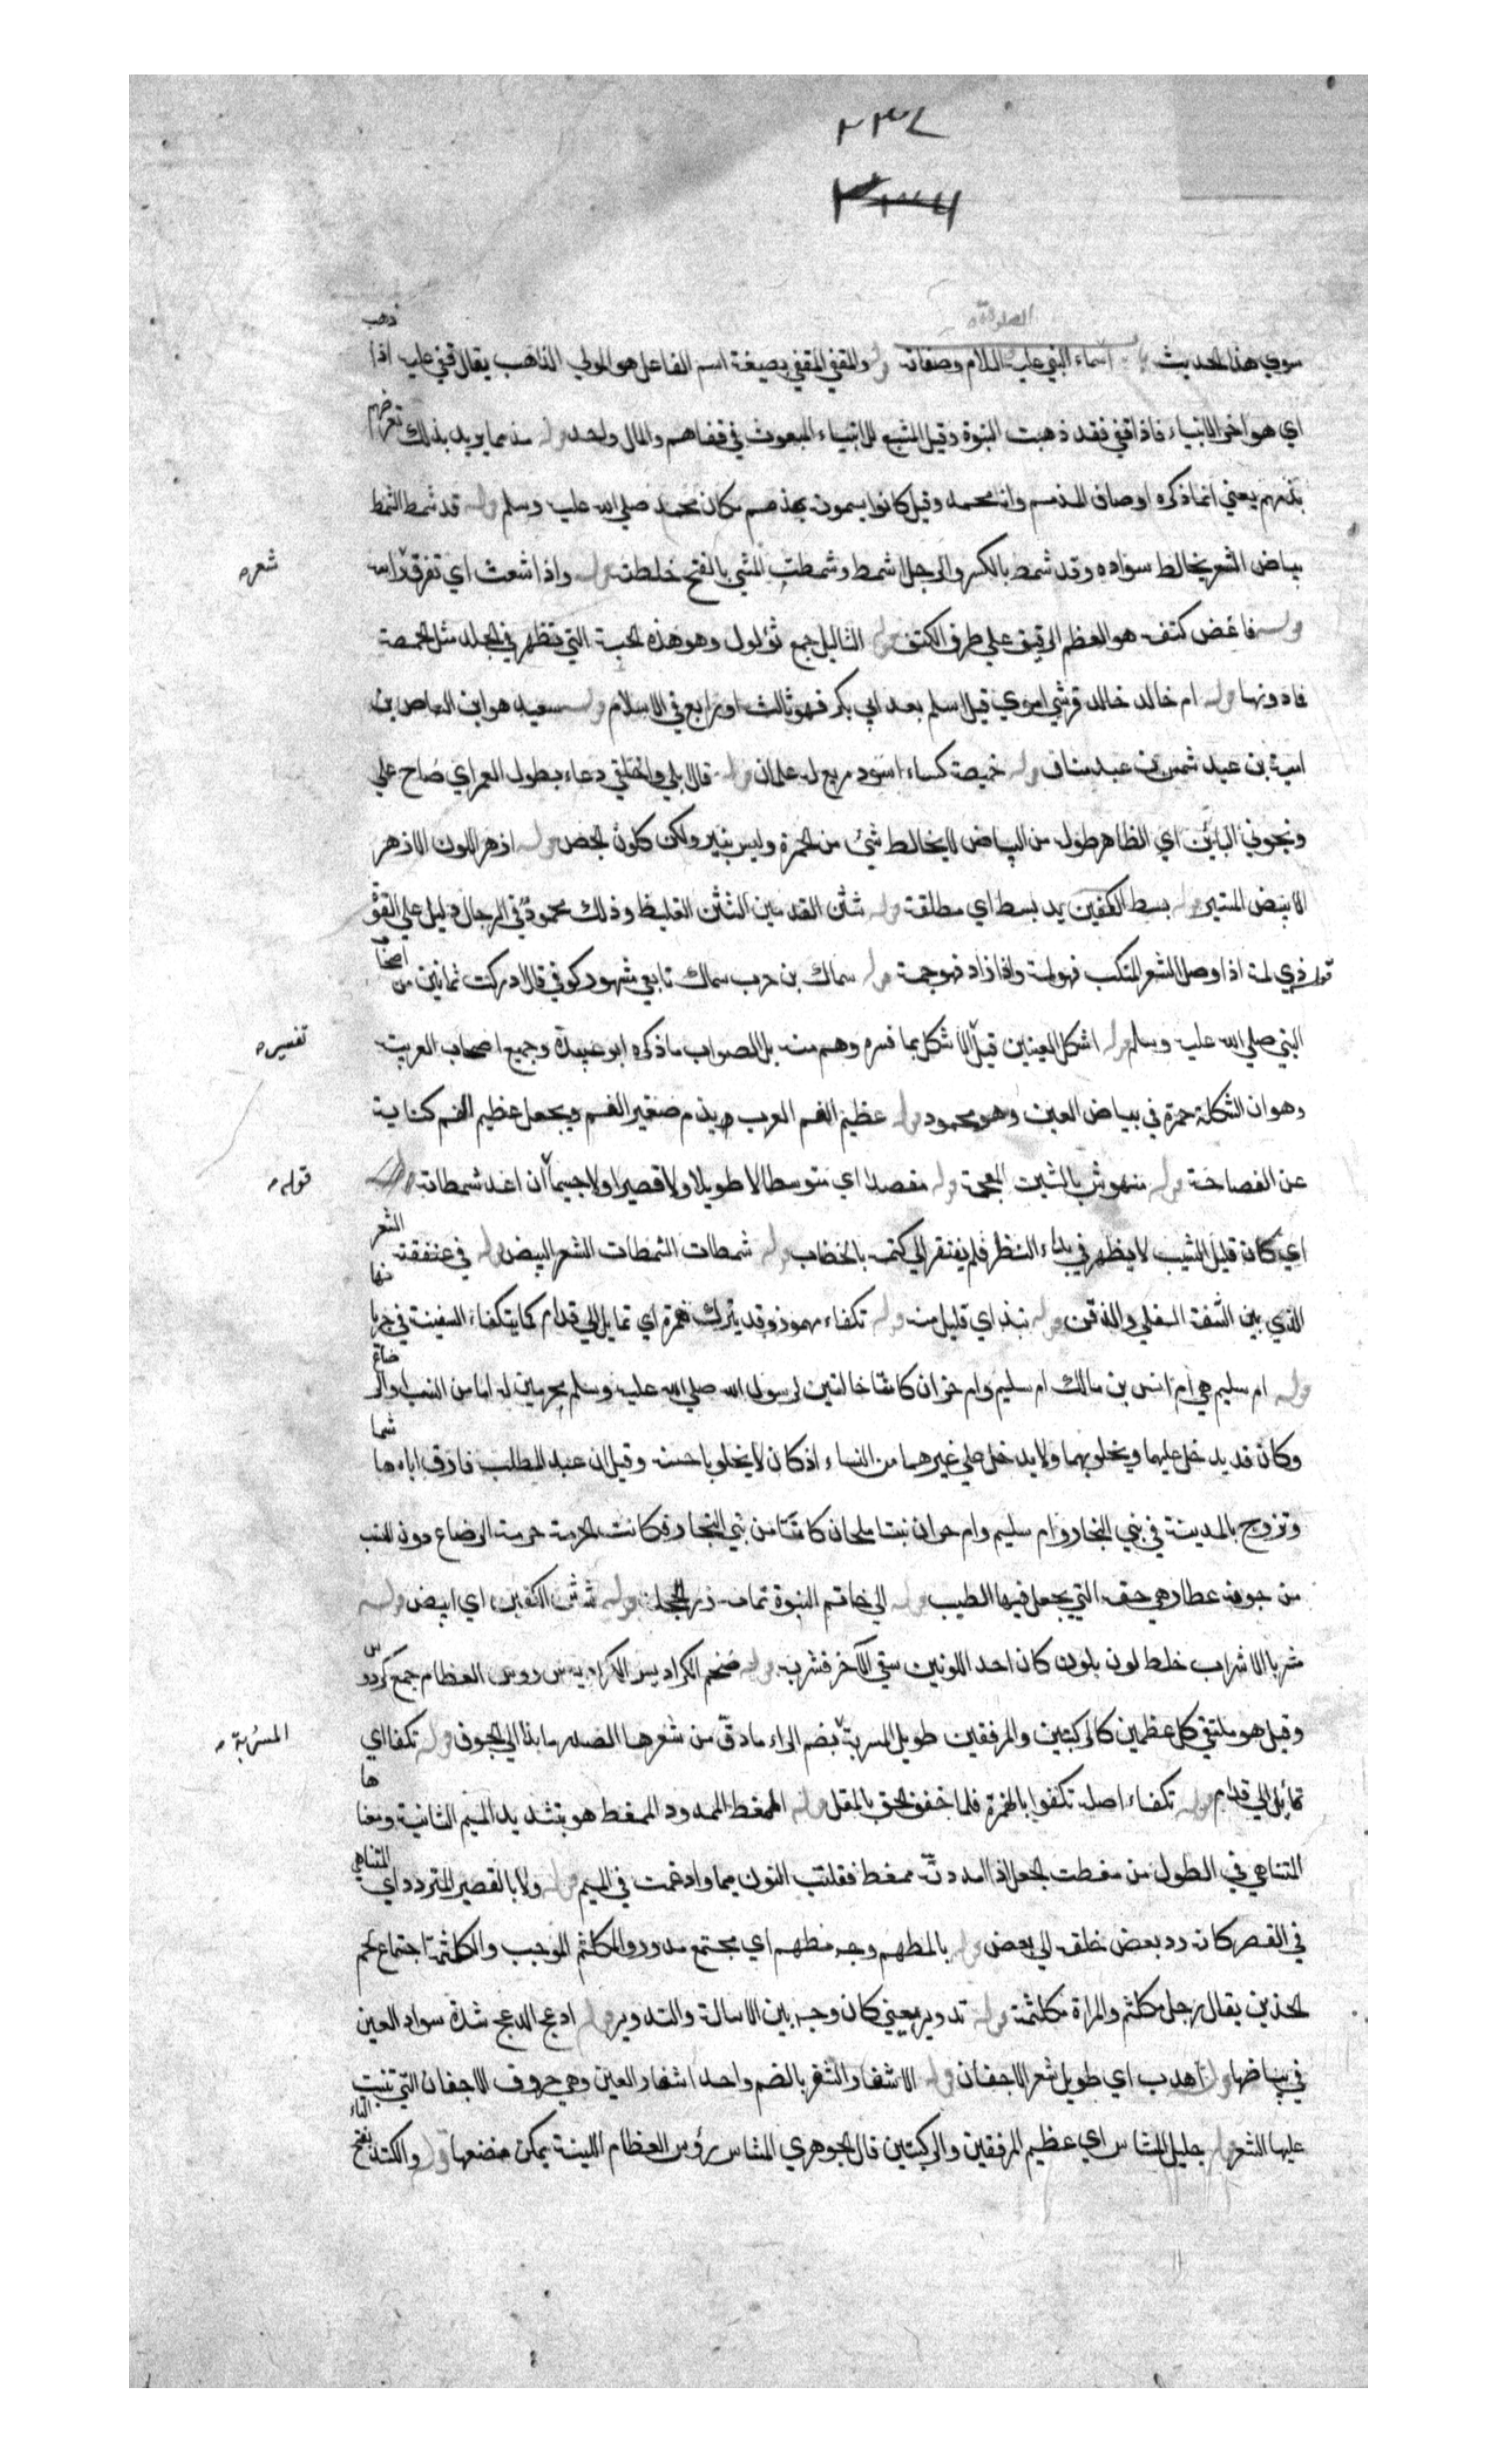 ٢٣٧
٢٣٦
الصلوة
سوي هذا الحديث باب اسماء النبي عليه السلام وصفاته قوله والمقفي المقفي بصيغة اسم الفاعل هو المولي الذاهب يقال قفي عليه اذا ذهب
اي هو اخر الانبياء فاذا قفي فقد ذهبت النبوة وقيل المتبع للانبياء المبعوث في قفاهم والمال واحد قوله مذمما يريد بذلك تعريضهم
بذمهم يعني انما ذكره اوصاف المذمم وانا محمد وقيل كانوا يسمونه بمذمم مكان محمد صلي الله عليه وسلم قوله قد شمط الشمط
بياض الشعر يخالط سواده وقد شمط بالكسر والرجل اشمط وشمطت الشي بالفتح خلطته قوله واذا شعث اي تفرق راسه
شعر
قوله ناغض كتفه هو العظم الرقيق علي طرف الكتف قوله الثاليل جمع ثؤلول وهو هذه الحبة التي تظهر في الجلد مثل الحمصة
فادونها قوله ام خالد خالد قرشي اموي قيل اسلم بعد ابي بكر فهو ثالث او رابع في الاسلام قوله سعيد هو ابن العاص بن
امية بن عبد شمس بن عبد مناف قوله خميصة كساء اسود مربع له علمان قوله قال ابلي واخلقي دعاء بطول العمر اي صاح علي
ونحوني البائن اي الظاهر طوله من البياض لا يخالط شئ من الحمرة وليس بنير ولكن كلون الجص قوله ازهر اللون الازهر
الابيض المنير قوله بسط الكفين يد بسط اي مطلقة قوله شثن القدمين الشثن الغليظ وذلك محمود في الرجال دليل علي القوة
قوله ذي لمة اذا وصل الشعر المنكب فهو لمة واذا زاد فهو جمة قوله سماك بن حرب سماك تابعي مشهور كوفي قال ادركت ثمانين من اصحاب
النبي صلي الله عليه وسلم قوله اشكل العينين قيل الاشكل بما فسره وهم منه بل الصواب ما ذكره ابو عبيدة وجميع اصحاب الغريب
تفسير
وهو ان الشكلة حمرة في بياض العين وهو محمود قوله عظيم الفم العرب يذم صغير الفم ويجعل عظيم الفم كناية
عن الفصاحة قوله منهوش بالشين المعجمة قوله مقصدا اي متوسطا لا طويلا ولا قصيرا ولا جسيما ان اعد شمطاته
قوله
اي كان قليل الشيب لا يظهر في بداء النظر فلم يفتقر الي كتمه بالخضاب قوله شمطات الشمطات الشعر البيض قوله في عنفقته الشعر
الذي بين الشفة السفلي والذقن قوله نبذ اي قليل منه قوله تكفاء مهموز وقد يترك همزه اي تمايل الي قدام كما يتكفاء السفينة في جريانها
قوله ام سليم هي ام انس بن مالك ام سليم وام حزان كانتا خالتين لرسول الله صلي الله عليه وسلم محرمين له اما من النسب او الرضاع
وكان قد يدخل عليهما ويخلو بهما ولا يدخل علي غيرهما من النساء اذ كان لا يخلو باجنبية وقيل ان عبد المطلب فارق اباه هاشما
وتزوج بالمدينة في بني النجار وام سليم وام حران بنتا ملحان كانتا من بني النجار فكانت الحرمة حرمة الرضاع دون النسب
من جونة عطار هي حقه التي يجعل فيها الطيب قوله الي خاتم النبوة تمامه زر الحجلة قوله شثن الكفين اي ابيض قوله
مشربا الاشراب خلط لون بلون كان احد اللونين سقي الآخر فشربه قوله ضخم الكراديس الكراديس رووس العظام جمع كردوس
وقيل هو ملتقي كل عظمين كالركبتين والمرفقين طويل المسربة بضم الراء ما دق من شعرها الصدر ما بذا الي الجوف قوله تكفا اي
المسربة
تمايل الي قدام قوله تكفاء اصله تكفوا بالهمزة فلما خفف لحق بالمعتل قوله الممغط الممدود الممغط هو بتشديد الميم الثانية ومعناها
المتناهي في الطول من مغطت الحبل اذا مددته ممغط فقلبت النون ميما وادغمت في الميم قوله ولا بالقصير المتردد اي المتناهي
في القصر كانه رد بعض خلقه الي بعض قوله بالمطهم وجه مطهم اي مجتمع مدور والمكلثم الوجيب والكلثمة اجتماع لحم
الخدين يقال رجل مكلثم والمراة مكلثمة قوله تدوير يعني كان وجهه بين الاسالة والتدوير قوله ادعج الدعج شدة سواد العين
في بياضها قوله اهدب اي طويل شعر الاجفان قوله الاشفار الشفر بالضم واحد اشفار العين وهي حروف الاجفان التي تنبت
عليها الشعر قوله جليل المشاس اي عظيم المرفقين والركبتين قال الجوهري المشاس رؤس العظام اللينة يمكن مضغها قوله والكتد بفتح التاء